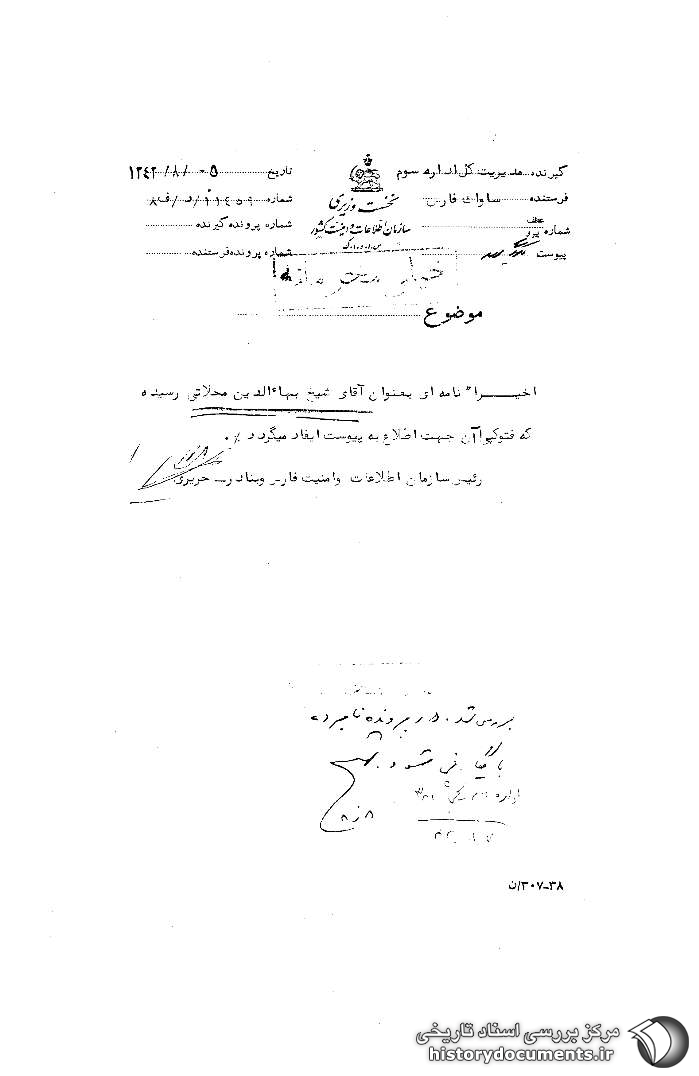 گیرنده مدیریت کل اداره سوم
فرستنده ساواک فارس
شماره
پیوست
نخست وزیری
سازمان اطلاعات و امنیت کشور
س.ا.و.ا.ک
تاریخ ۱۳۴۲/۸/۰۵
شماره
شماره پرونده گیرنده
شماره پرونده فرستنده
خیلی محرمانه
موضوع
اخیراً نامه ای بعنوان آقای شیخ بهاءالدین محلاتی رسیده
که فتوکپی آن جهت اطلاع به پیوست ایفاد میگردد ٪
رئیس سازمان اطلاعات وامنیت فارس وبنادر ـ حریری
بررسی شد. در پرونده نامبرده
بایگانی شود
۳۰۷-۳۸/ن
مرکز بررسی اسناد تاریخی
historydocuments.ir